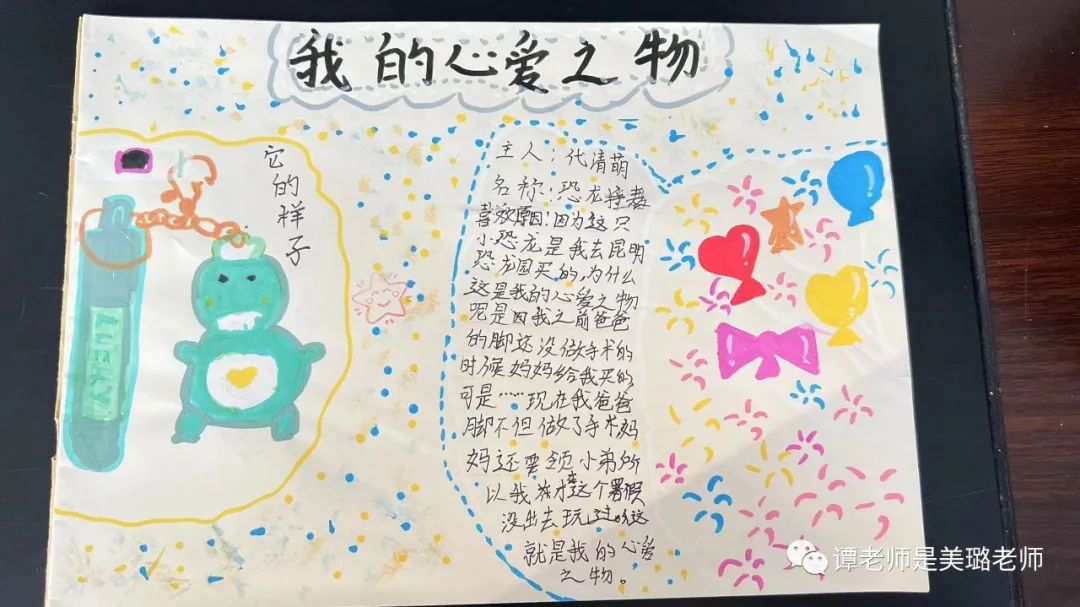 我的心爱之物
它的样子
LUCKY
主人：代清萌
名称：恐龙
喜欢原因：因为这只
小恐龙是我去昆明
恐龙园买的，为什么
这是我的心爱之物
呢是因我之前爸爸
的脚还没做手术的
时候妈妈给我买的
可是……现在我爸爸
脚不但做了手术妈
妈还要领小弟所
以我这个暑假
没出去玩过这
就是我的心爱
之物。
谭老师是美璐老师